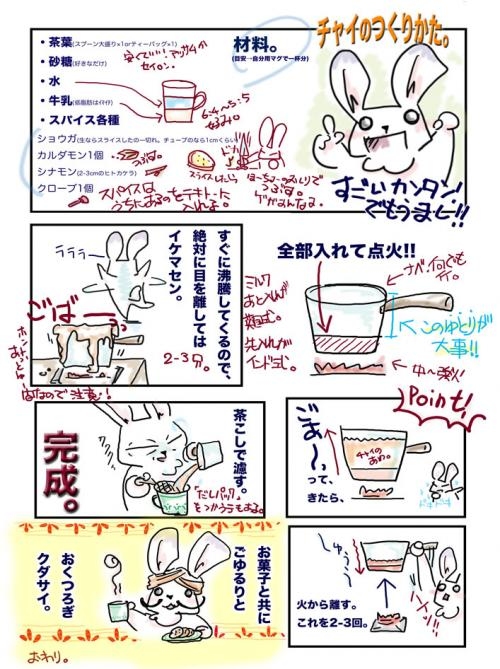 チャイのつくりかた。
材料。
(目安…自分用マグで一杯分)
・茶葉(スプーン大盛り×1orティーバッグ×1)
安くていい!アッサムか
セイロン。
・砂糖(好きなだけ)
・水
・牛乳(低脂肪はイヤイヤ)
6:4〜5:5
お好み。
・スパイス各種
ショウガ(生ならスライスしたの一切れ。チューブのなら1cmくらい)
カルダモン1個
つぶす。
シナモン(2-3cmのヒトカケラ)
クローブ1個
スライスしたら
スパイスは
うちにあるのをテキトーに
入れよ。
すごいカンタン
でもうまし!!
全部入れて点火!!
ナベ。何でも
可。
ミルク
あと入れが
英国式。
先入れが
インド式。
このゆとりが
大事!!
中〜強火!
ラララ
すぐに沸騰してくるので、
絶対に目を離しては
イケマセン。
2-3分。
ごばー
なので注意!
Point!
ごぁ〜っ
って、
きたら、
チャイの
あわ。
ドキドキ
しゅうぅ
火から離す。
これを2-3回。
茶こしで濾す。
「だしパック」
をつかうテもある。
完成。
お菓子と共に
ごゆるりと
おくつろぎ
クダサイ。
おわり。